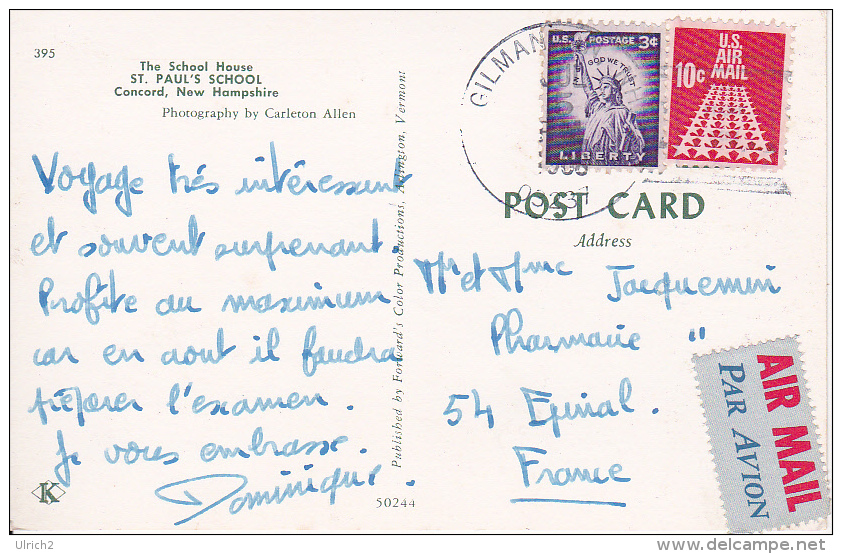 395
The School House
ST. PAUL'S SCHOOL
Concord, New Hampshire
Photography by Carleton Allen
Voyage très intéressant
et souvent surprenant.
Profite au maximum
car en aout il faudra
préparer l'examen.
Je vous embrasse.
Dominique.
K
50244
Published by Forward's Color Productions, Arlington, Vermont
GILMAN
U.S. POSTAGE 3¢
IN GOD WE TRUST
LIBERTY
U.S.
AIR
10c MAIL
POST CARD
Address
Mr et Mme Jacquemin
Pharmacie "
54 Epinal.
France
AIR MAIL
PAR AVION
Ulrich2
www.delcampe.net